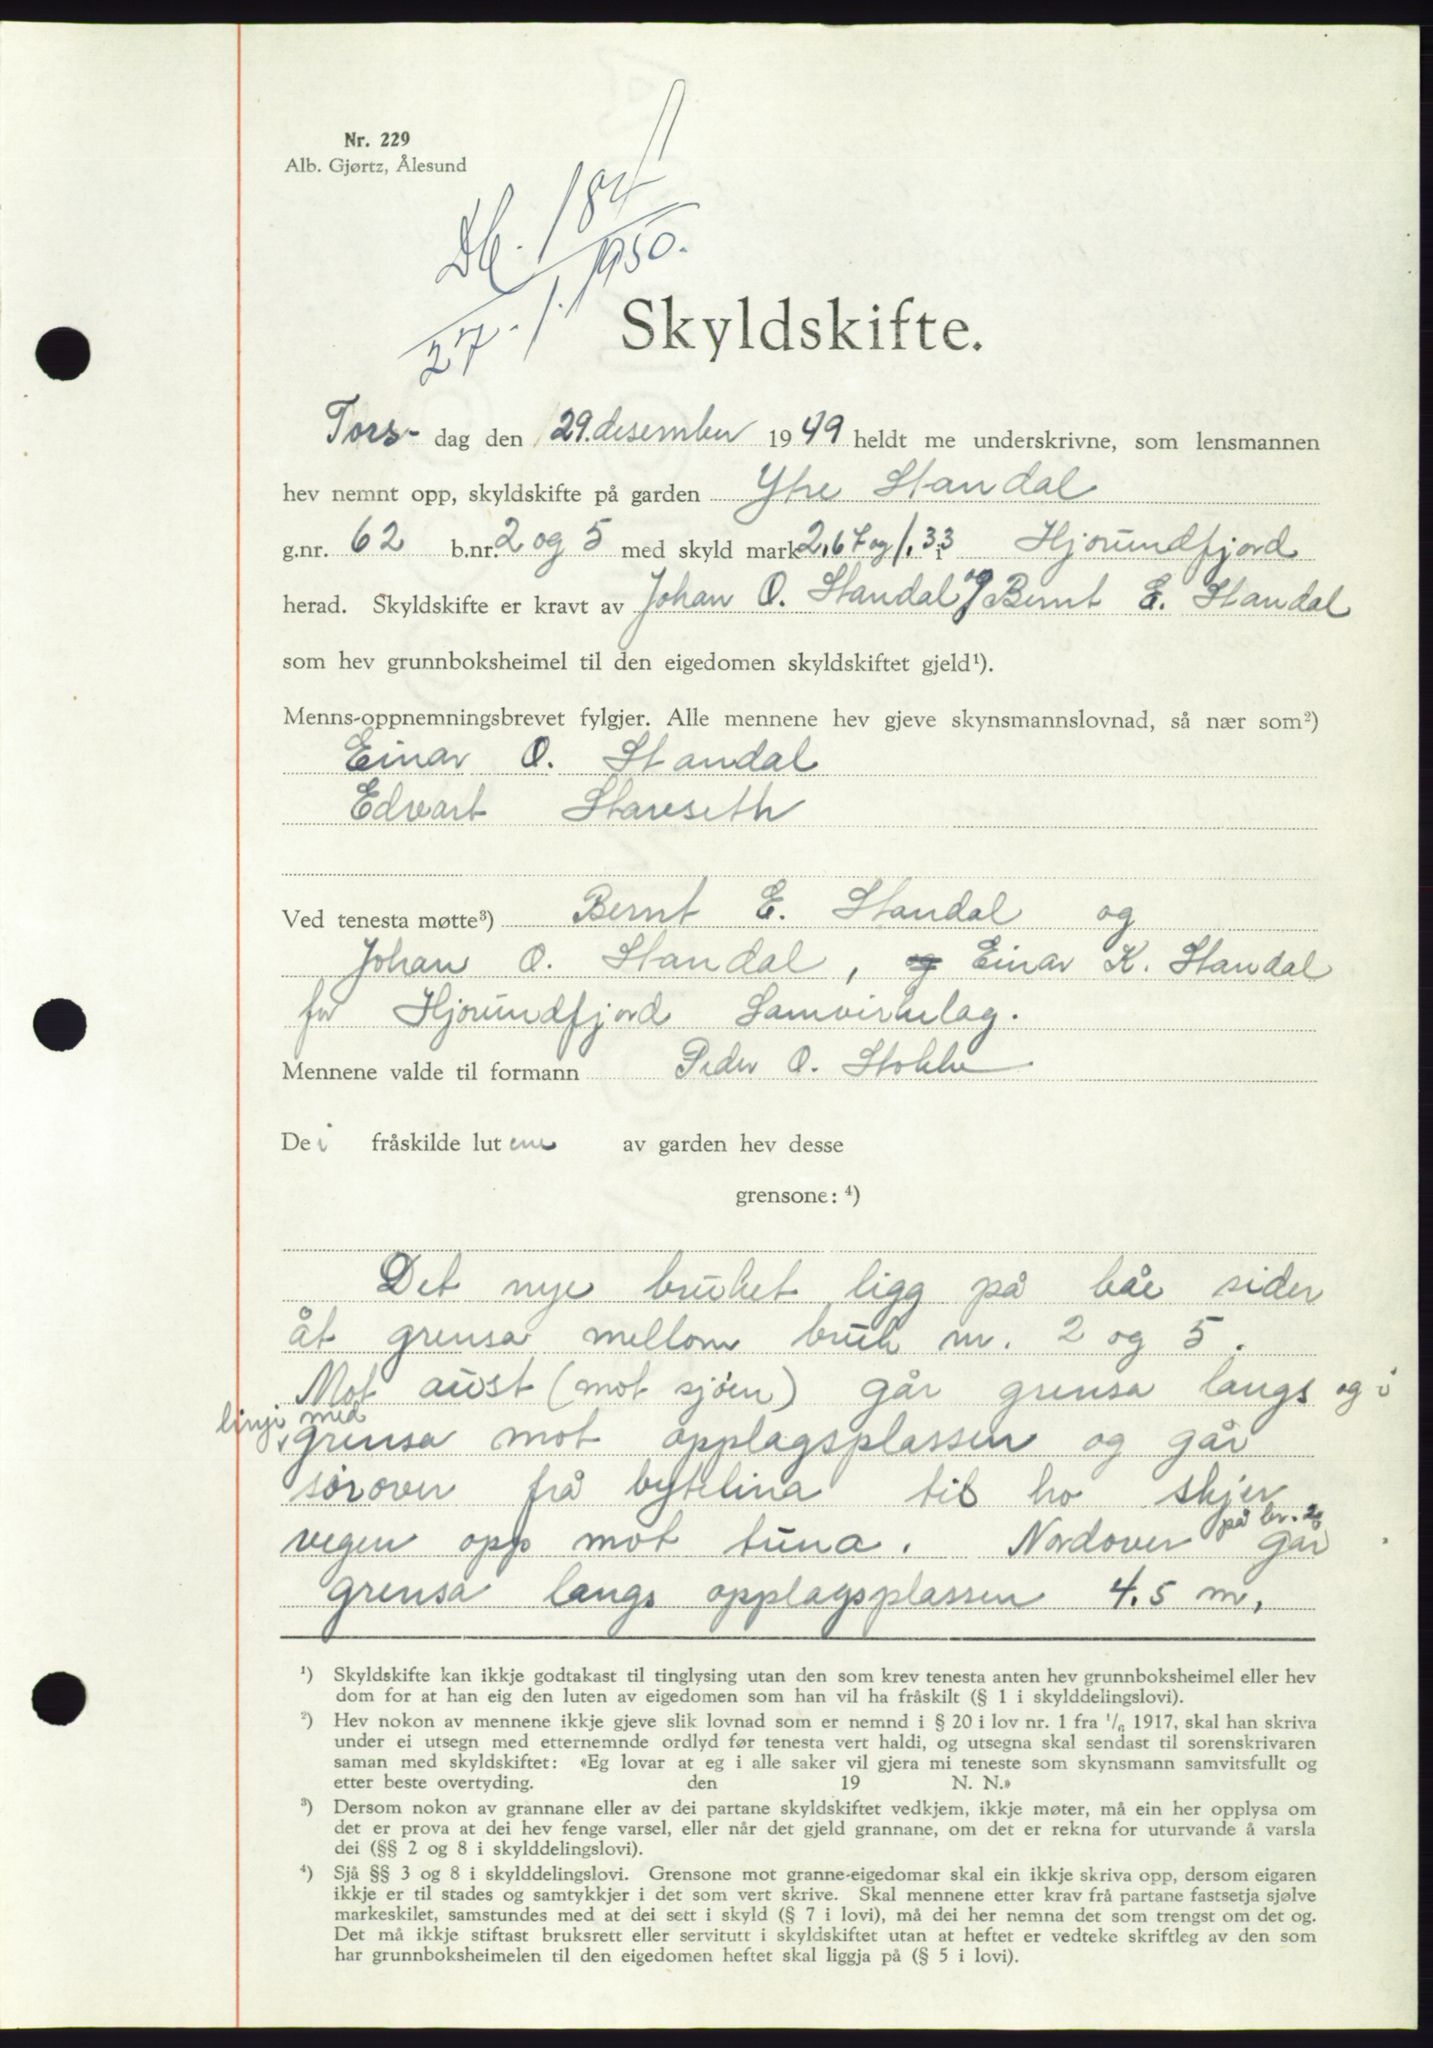 Nr. 229
Alb. Gjørtz, Ålesund
Db. 184
27. 1. 1950.
Skyldskifte.
Tors- dag den 29. desember 1949 heldt me underskrivne, som lensmannen
hev nemnt opp, skyldskifte på garden Ytre Standal
g.nr. 62 b.nr. 2 og 5 med skyld mark 2,67 og 1.33 i Hjørundfjord
herad. Skyldskifte er kravt av Johan O. Standal og Bernt E. Standal
som hev grunnboksheimel til den eigedomen skyldskiftet gjeld¹).
Menns-oppnemningsbrevet fylgjer. Alle mennene hev gjeve skynsmannslovnad, så nær som²)
Einar O. Standal
Edvart Stavseth
Ved tenesta møtte³) Bernt E. Standal og
Johan O. Standal, og Einar K. Standal
for Hjørundfjord Samvirkelag.
Mennene valde til formann Peder O. Stokke
Dei fråskilde lutene av garden hev desse
grensone: ⁴)
Det nye bruket ligg på båe sider
åt grensa mellom bruk nr. 2 og 5.
Mot aust (mot sjøen) går grensa langs og i
linje med grensa mot opplagsplassen og går
sørover frå bytelina til ho skjer
vegen opp mot tuna. Nordover på br. 2 går
grensa langs opplagsplassen 4.5 m,
¹) Skyldskifte kan ikkje godtakast til tinglysing utan den som krev tenesta anten hev grunnboksheimel eller hev
dom for at han eig den luten av eigedomen som han vil ha fråskilt (§ 1 i skylddelingslovi).
²) Hev nokon av mennene ikkje gjeve slik lovnad som er nemnd i § 20 i lov nr. 1 fra ¹/₆ 1917, skal han skriva
under ei utsegn med etternemnde ordlyd før tenesta vert haldi, og utsegna skal sendast til sorenskrivaren
saman med skyldskiftet: «Eg lovar at eg i alle saker vil gjera mi teneste som skynsmann samvitsfullt og
etter beste overtyding. den 19 N. N.»
³) Dersom nokon av grannane eller av dei partane skyldskiftet vedkjem, ikkje møter, må ein her opplysa om
det er prova at dei hev fenge varsel, eller når det gjeld grannane, om det er rekna for uturvande å varsla
dei (§§ 2 og 8 i skylddelingslovi).
⁴) Sjå §§ 3 og 8 i skylddelingslovi. Grensone mot granne-eigedomar skal ein ikkje skriva opp, dersom eigaren
ikkje er til stades og samtykkjer i det som vert skrive. Skal mennene etter krav frå partane fastsetja sjølve
markeskilet, samstundes med at dei sett i skyld (§ 7 i lovi), må dei her nemna det som trengst om det og.
Det må ikkje stiftast bruksrett eller servitutt i skyldskiftet utan at heftet er vedteke skriftleg av den som
har grunnboksheimelen til den eigedomen heftet skal liggja på (§ 5 i lovi).